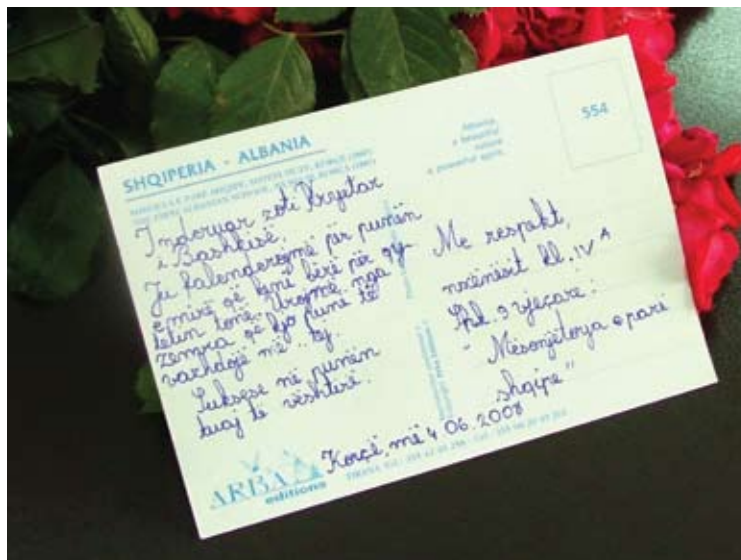 SHQIPERIA - ALBANIA
554
Albania,
a beautiful
nature
a powerful spirit.
I nderuar zoti Kryetar
i Bashkisë,
Ju falenderojmë për punën
e mirë që keni bërë për qy-
tetin tonë. Urojmë nga
zemra që kjo punë të
vazhdojë më .. tej.
Suksese në punën
tuaj të vështirë.
Me respekt,
nxënësit kl. IV A
Shk. 9 vjeçare:
- "Mësonjëtorja e parë
shqipe"
Korçë, më 4.06.2008
ARBA
editions